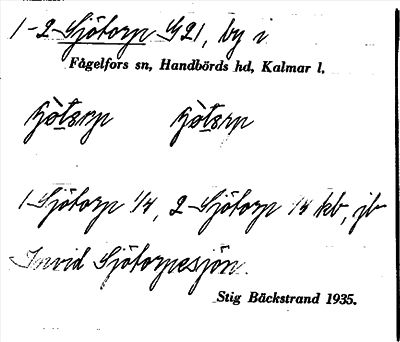 1-2 Sjötorp G21, by i
Fågelfors sn, Handbörds hd, Kalmar l.
1 Sjötorp 1/4, 2 Sjötorp 1/4 kb, jb
Invid Sjötorpesjön.
Stig Bäckstrand 1935.